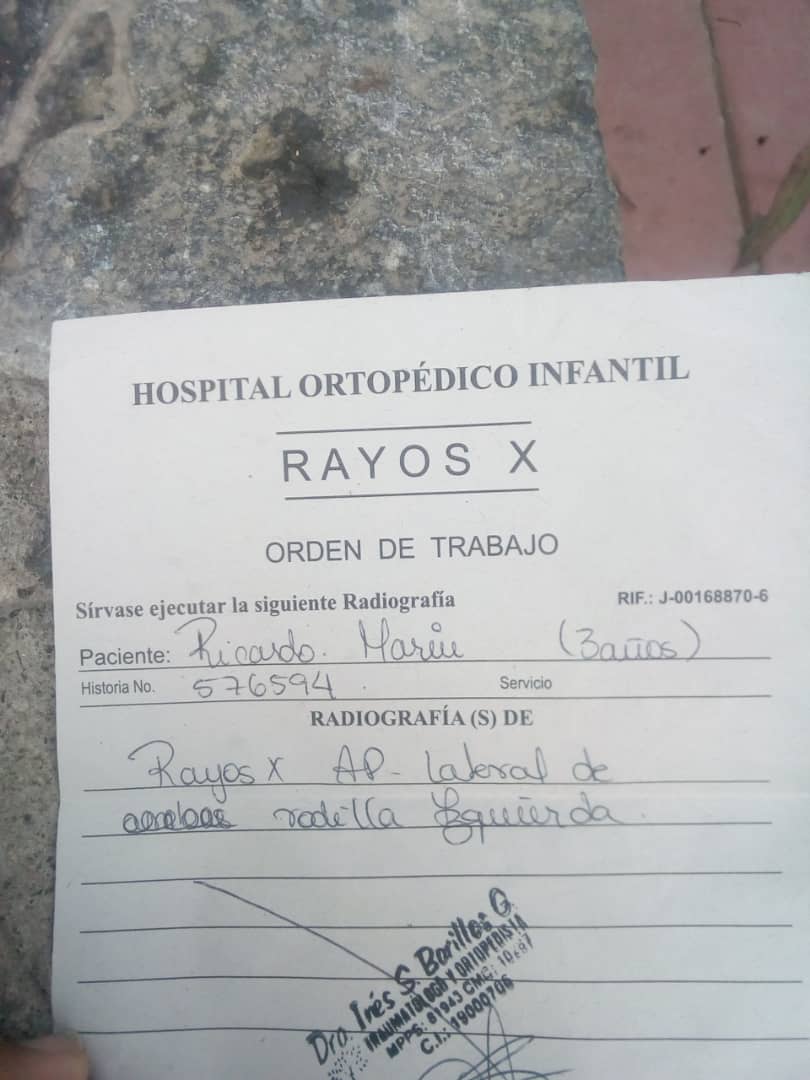 HOSPITAL ORTOPÉDICO INFANTIL
RAYOS X
ORDEN DE TRABAJO
Sírvase ejecutar la siguiente Radiografía
RIF.: J-00168870-6
Paciente: Ricardo. Marin (3años)
Historia No. 576594. Servicio
RADIOGRAFÍA (S) DE
Rayos X AP- lateral de
rodilla Izquierda.
Dra. Inés S. Borilles G.
TRAUMATOLOGÍA Y ORTOPEDISTA
MPPS: 81943 CMC: 10
C.I.: 19000706